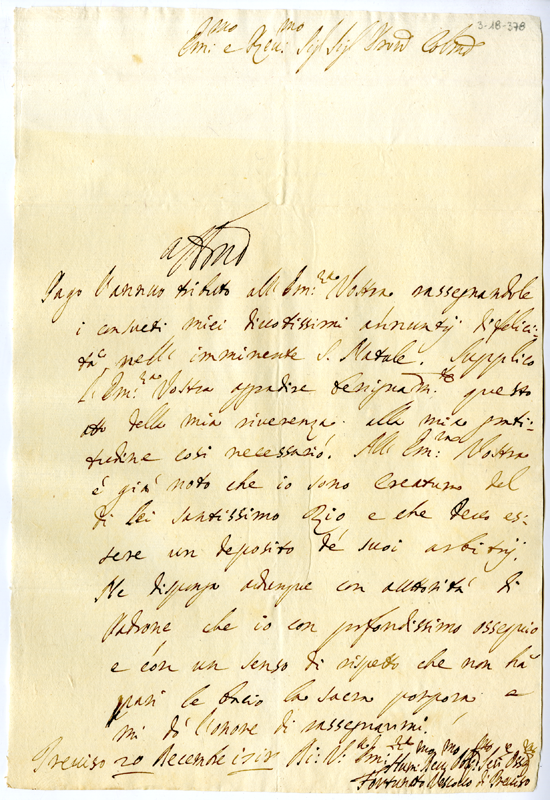 3-18-378
Em:mo e Rev:mo Sig Sig Pron Colmo
Pago l'annuo tributo all' Em:za Vostra rassegnandole
i consueti miei divotissimi annuntij di felici-
tà nell' imminente S. Natale. Supplico
l' Em:za Vostra aggradire benignam:te questo
atto della mia riverenza alla mia grati-
tudine così necessario. All' Em:za Vostra
è già noto che io sono Creatura del
di Lei Santissimo Zio e che devo es-
sere un deposito de suoi arbitrij.
Ne disponga adunque con auttorità di
Padrone che io con profondissimo ossequio
e con un senso di rispetto che non hà
pari le bacio la sacra porpora e
mi dò l'onore di rassegnarmi.
Treviso 20 Decembre Di V: Em:za
Hum:
Fortunato Vescovo di Treviso